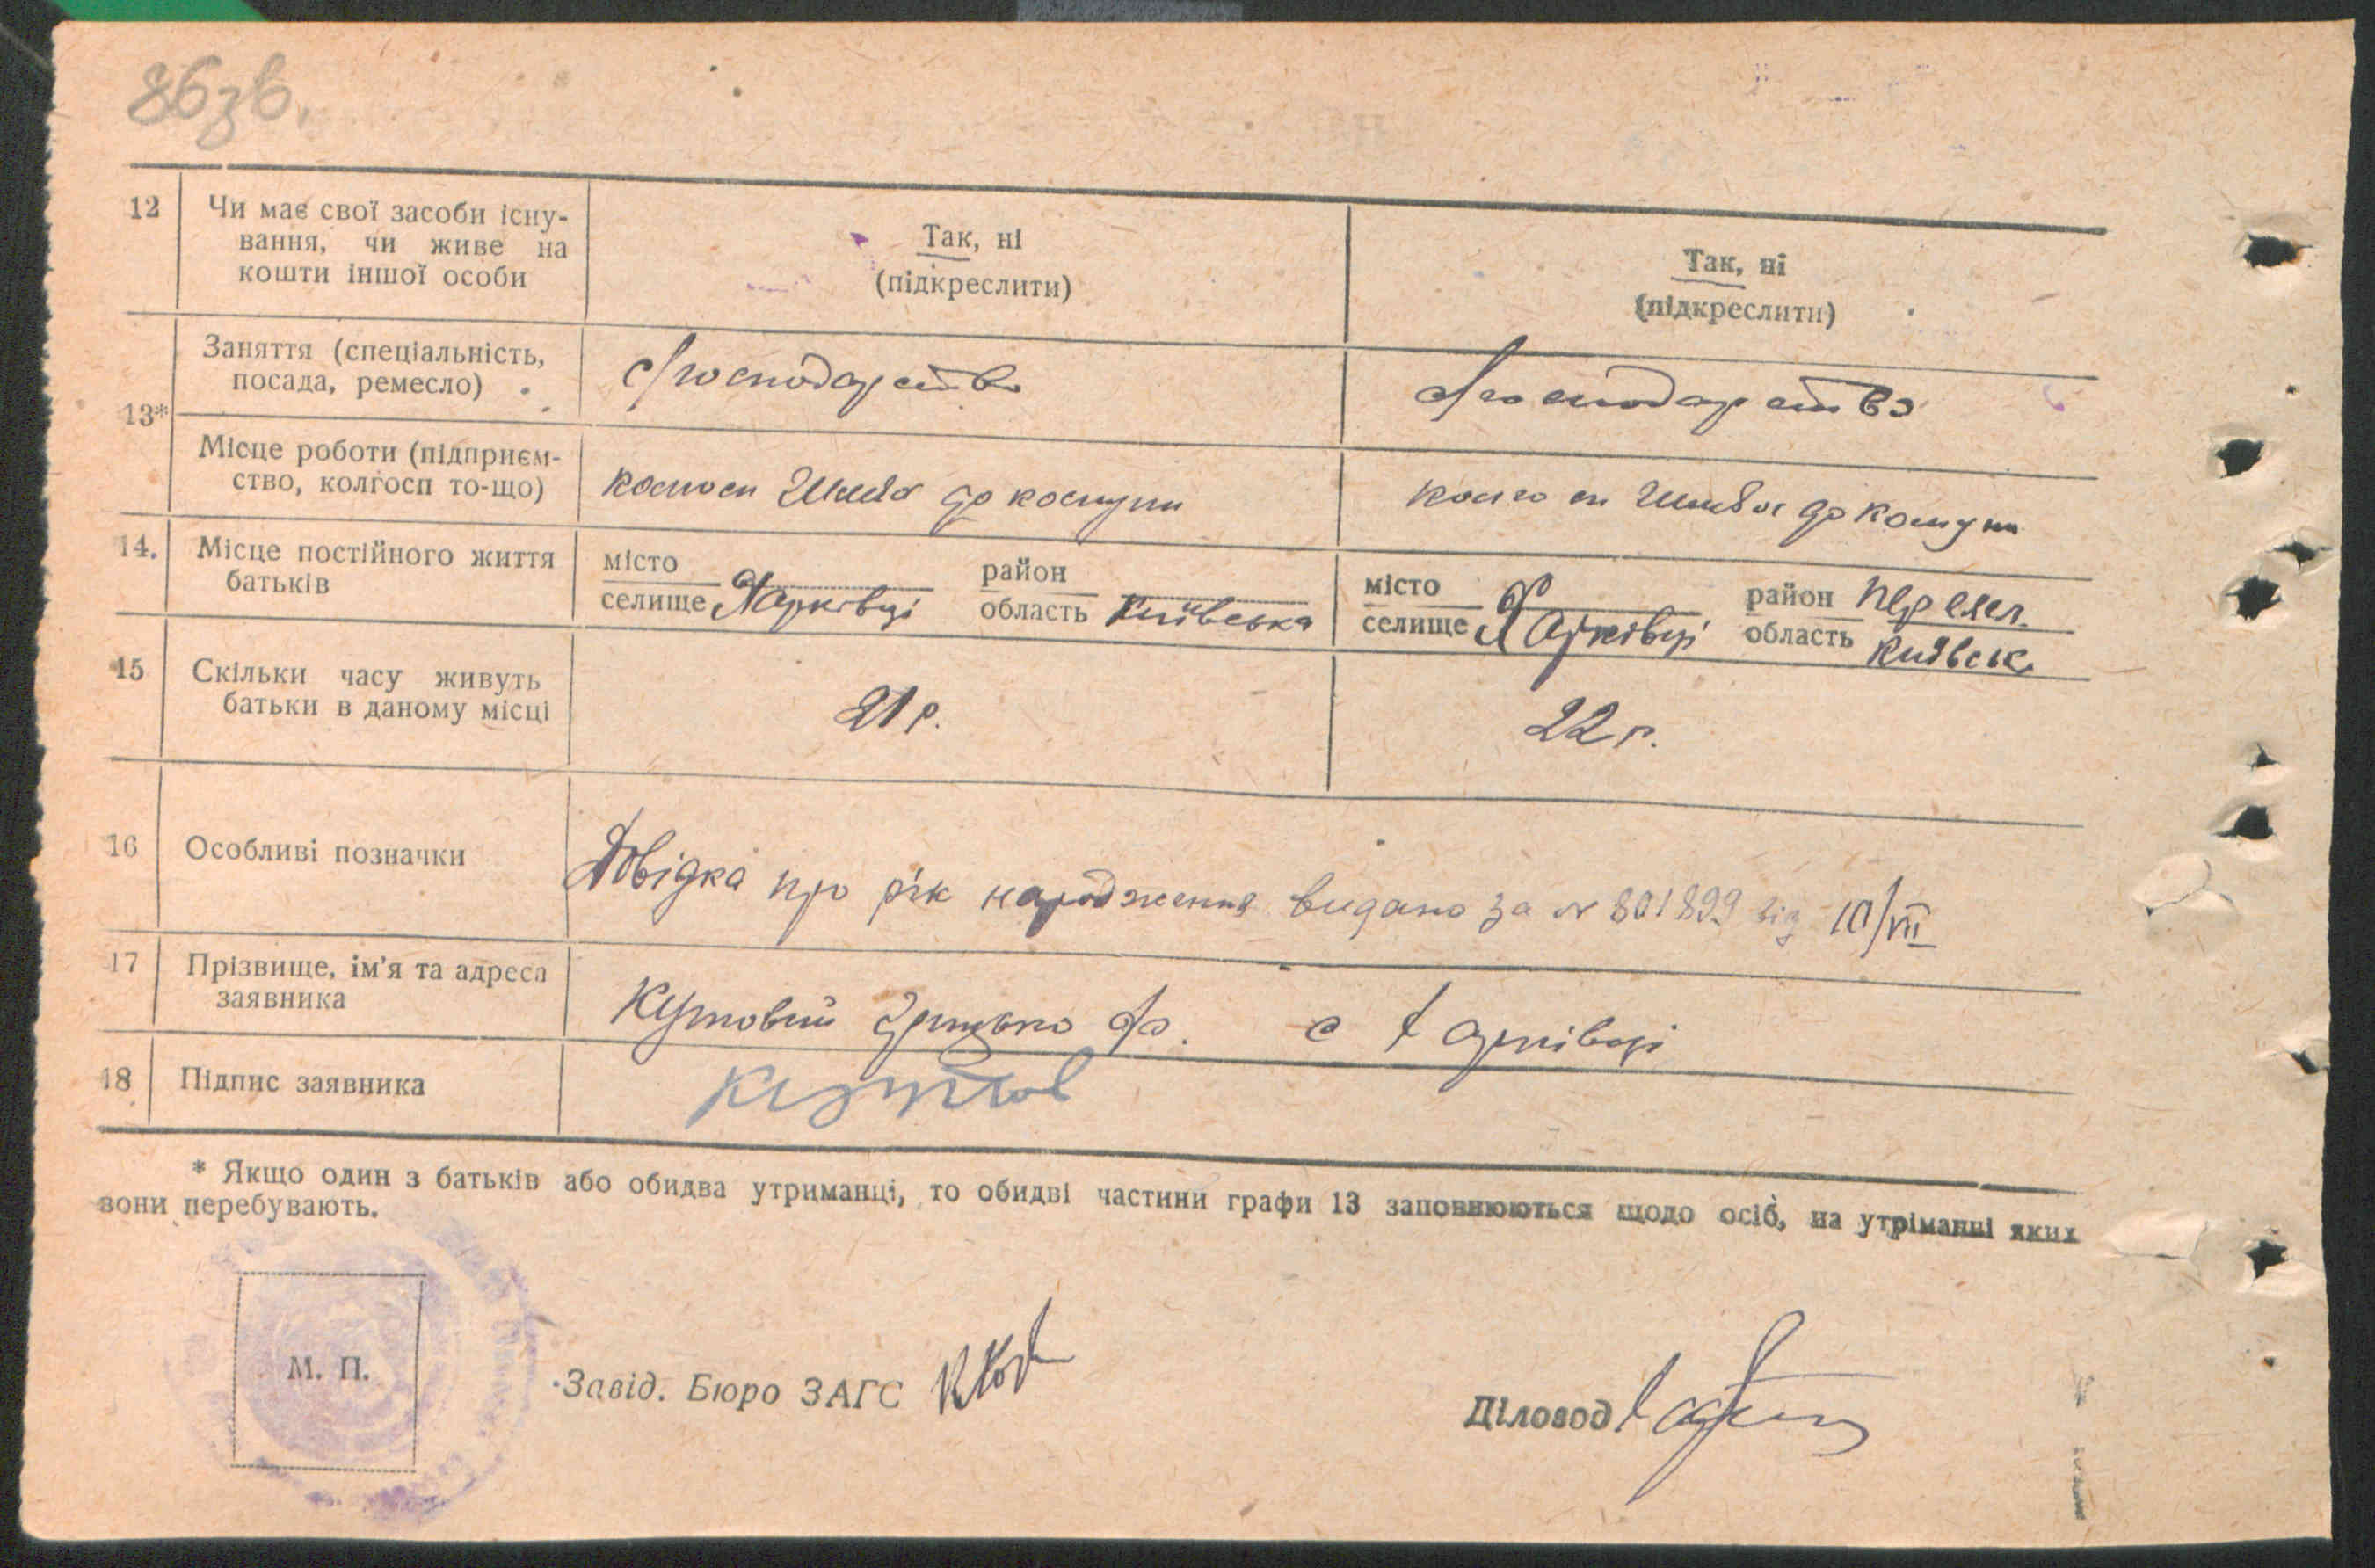 86зв.
12 Чи має свої засоби існу-
вання, чи живе на
кошти іншої особи
Так, ні
(підкреслити)
Так, ні
(підкреслити)
13*
Заняття (спеціальність,
посада, ремесло)
с/господарство
с/господарство
Місце роботи (підприєм-
ство, колгосп то-що)
колгосп Шлях до комуни
колгосп Шлях до комуни
14. Місце постійного життя
батьків
місто
селище Харківці
район
область Київська
місто
селище Харківці
район Переясл.
область Київськ.
15 Скільки часу живуть
батьки в даному місці
21 р.
22 р.
16 Особливі позначки
Довідка про рік народження видано за № 801899 від 10/VII
17 Прізвище, ім'я та адреса
заявника
Кутовий Грицько Ф. с Харківці
18 Підпис заявника
Кутов
* Якщо один з батьків або обидва утриманці, то обидві частини графи 13 заповнюються щодо осіб, на утріманні яких
вони перебувають.
М. П.
Завід. Бюро ЗАГС
Діловод